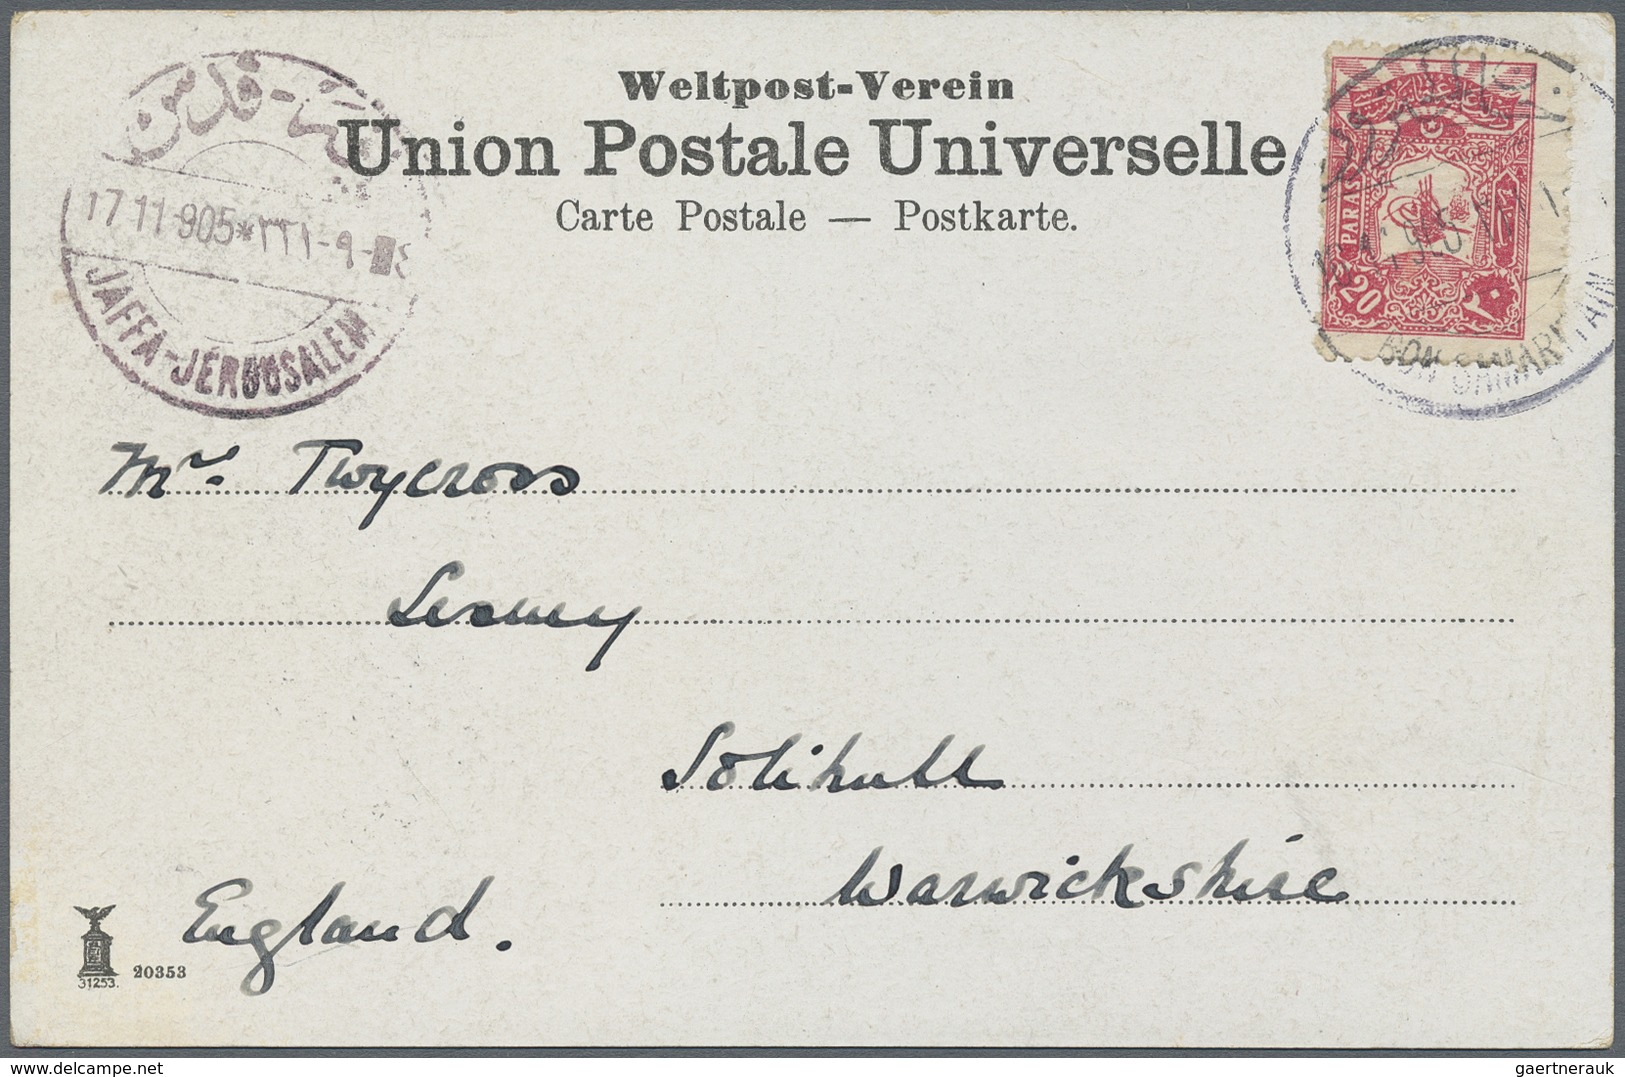 Weltpost-Verein
Union Postale Universelle
Carte Postale — Postkarte.
قدس
17 11 905*٣٢١-٩-٤
JAFFA-JÉRUUSALEM
PARAS
20 ٢٠
BON SAMARITAIN
Mrs. Twycross
Solihull
Warwickshire
England.
20353
31253.
gaertnerauk